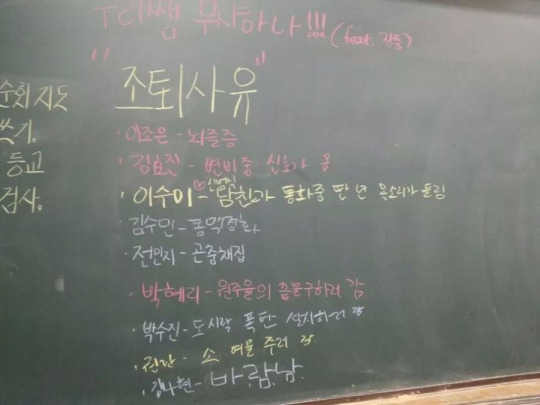 쌤 부자하나!!! (feat. 감동)
"조퇴사유"
순회지도
쓰기.
등교
검사.
· 이조은 - 뇌졸증
· 김효진 - 변비중 신호가 옴
· 이수미 - 남친과 통화중 딴 년 목소리가 들림
· 김수민 - 동맥경화
· 전민지 - 곤충채집
· 박혜리 - 원주율의 끝을구하러 감
· 박수진 - 도시락 폭탄 설치하러 감
· 소 여물 주러 감
· 김나현 - 바람남